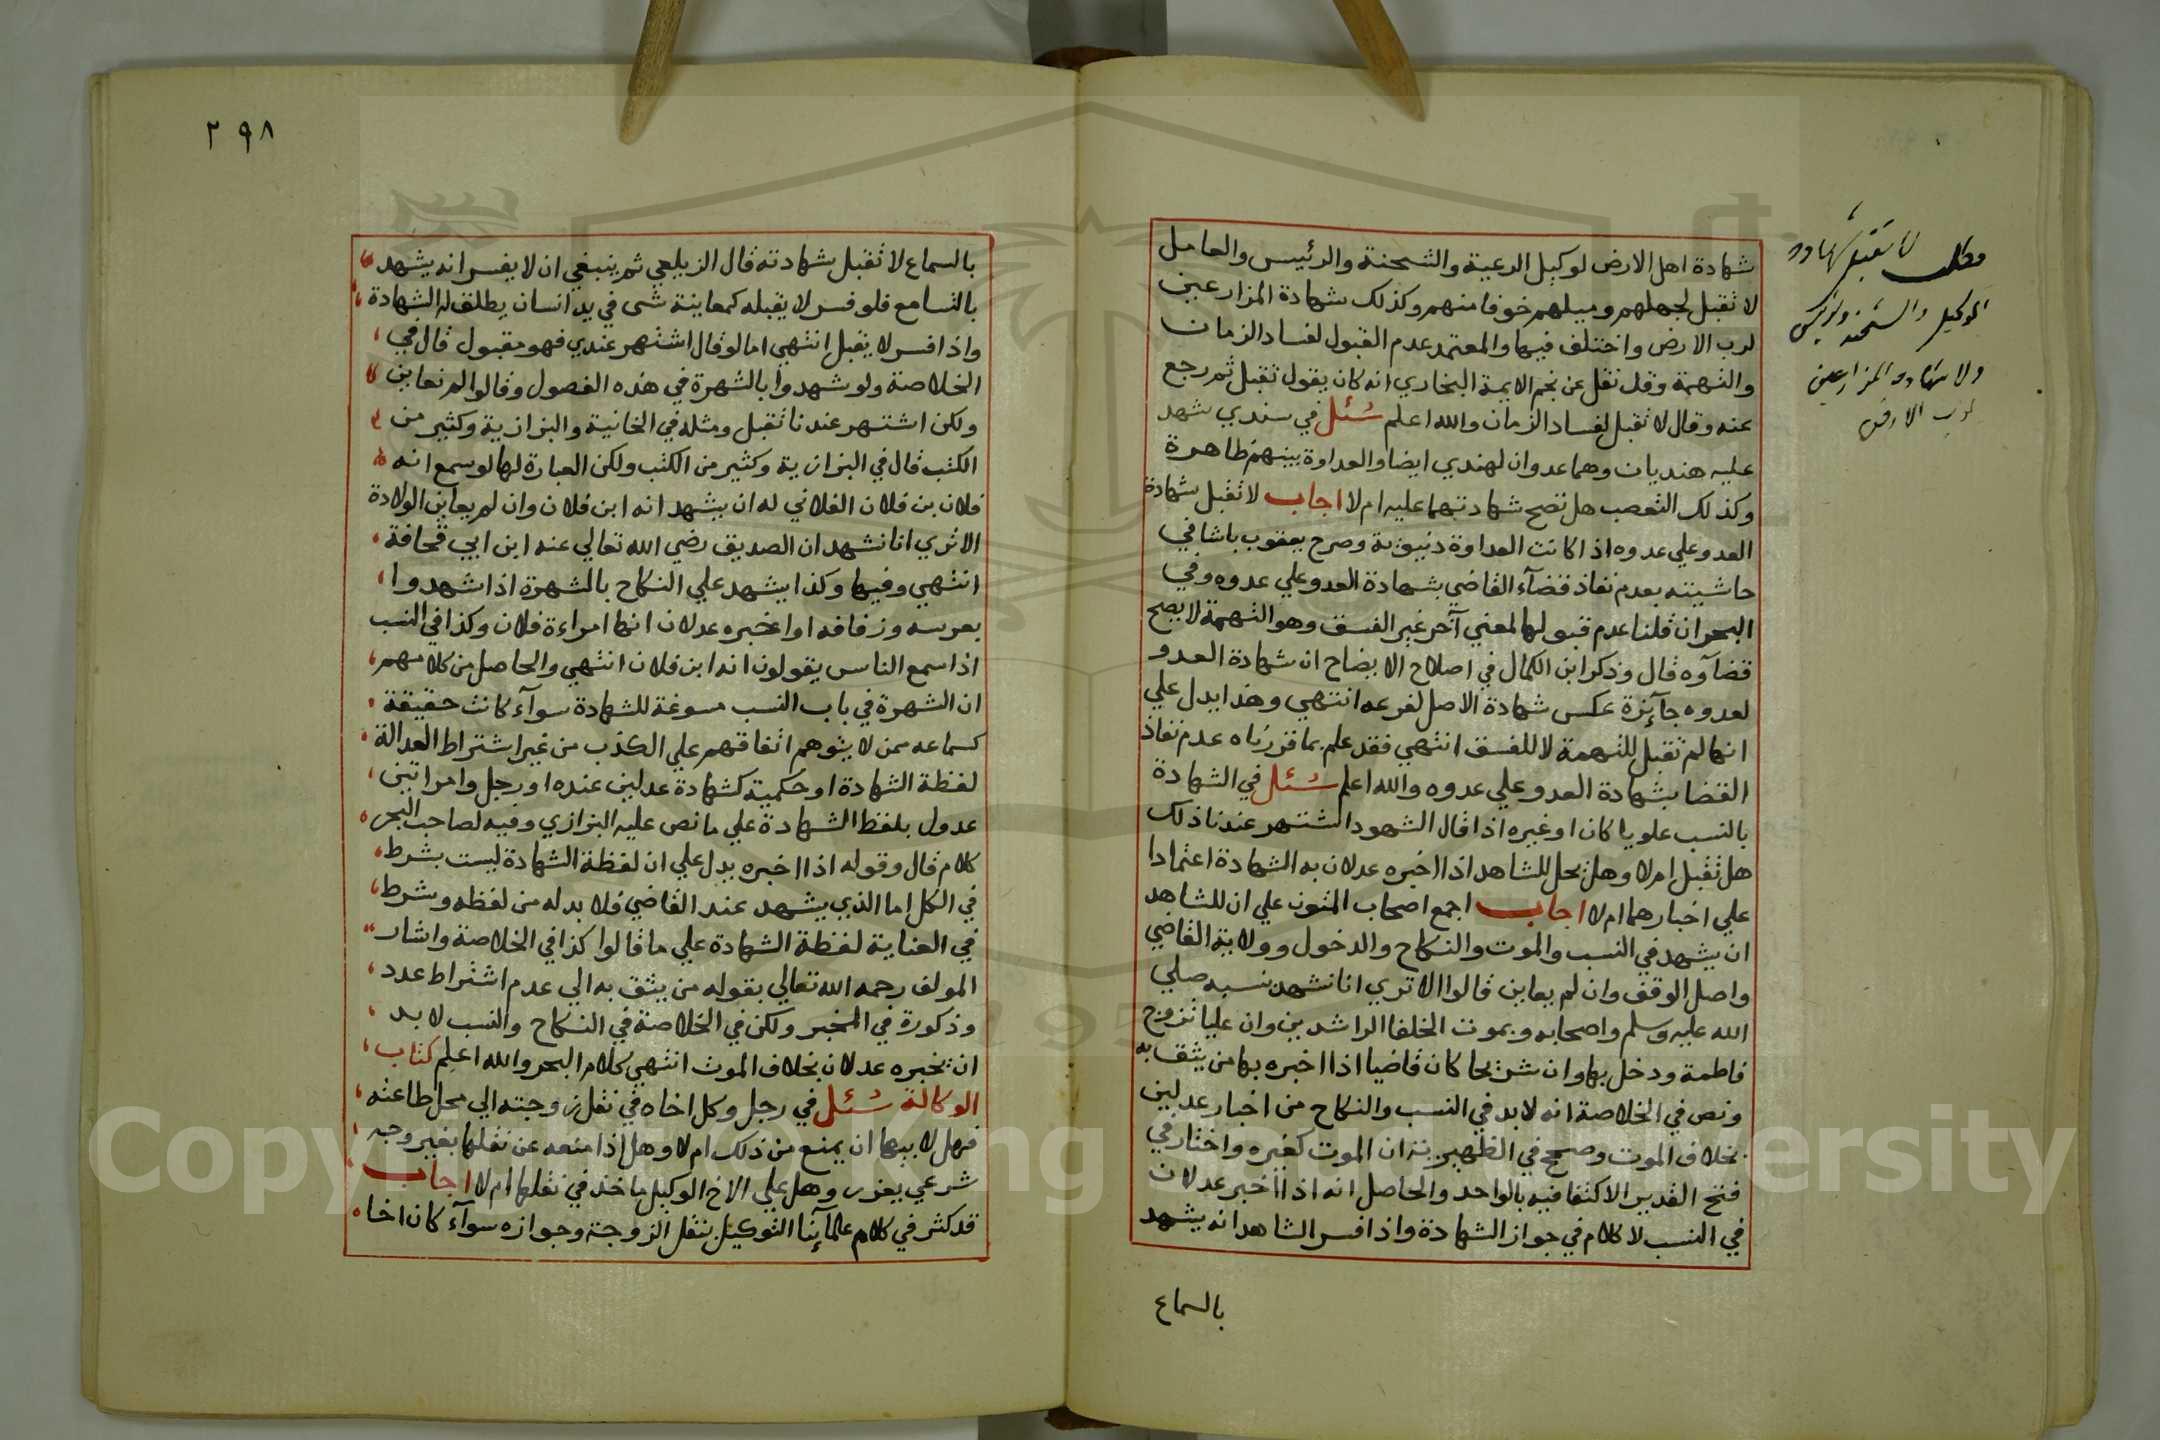 شهادة اهل الارض لوكيل الرعية والشحنة والرئيس والعامل
لا تقبل لجهلهم وميلهم خوفا منهم وكذلك شهادة المزارعين
لرب الارض واختلف فيها والمعتمد عدم القبول لفساد الزمان
والتهمة وقد نقل عن نجم الايمة البخاري انه كان يقول تقبل ثم رجع
عنه وقال لا تقبل لفساد الزمان والله اعلم سئل في سندي شهد
عليه هنديان وهما عدوان لهندي ايضا والعداوة بينهم ظاهرة
وكذلك التعصب هل تصح شهادتهما عليه ام لا اجاب لا تقبل شهادة
العدو علي عدوه اذا كانت العداوة دنيوية وصرح يعقوب باشا في
حاشيته بعدم نفاذ قضآء القاضي بشهادة العدو علي عدوه وفي
البحر ان قلنا عدم قبولها لمعني آخر غير الفسق وهو التهمة لا يصح
قضاوه قال وذكر ابن الكمال في اصلاح الايضاح ان شهادة العدو
لعدوه جآئزة عكس شهادة الاصل لفرعه انتهي وهذا يدل علي
انها لم تقبل للتهمة لا للفسق انتهي فقد علم بما قررناه عدم نفاذ
القضا بشهادة العدو علي عدوه والله اعلم سئل في الشهادة
بالنسب علويا كان او غيره اذا قال الشهود اشتهر عندنا ذلك
هل تقبل ام لا وهل يحل للشاهد اذا اخبره عدلان به الشهادة اعتمادا
علي اخبارهما ام لا اجاب اجمع اصحاب المتون علي ان للشاهد
ان يشهد في النسب والموت والنكاح والدخول وولاية القاضي
واصل الوقف وان لم يعاين قالوا الا تري انا نشهد نسبه صلي
الله عليه وسلم واصحابه وبموت الخلفا الراشدين وان عليا تزوج
فاطمة ودخل بها وان شريحا كان قاضيا اذا اخبره بها من يثق به
ونص في الخلاصة انه لا بد في النسب والنكاح من اخبار عدلين
بخلاف الموت وصحح في الظهيرية ان الموت كغيره واختار في
فتح القدير الاكتفا فيه بالواحد والحاصل انه اذا اخبر عدلان
في النسب لا كلام في جواز الشهادة واذا فسر الشاهد انه يشهد
بالسماع
مطلب لا تقبل شهادة
الوكيل والشحنة والرئيس
ولا شهادة المزارعين
لرب الارض
٢٩٨
بالسماع لا تقبل شهادته قال الزيلعي ثم ينبغي ان لا يفسر انه يشهد
بالتسامع فلو فسر لا يقبله كمعاينة شى في يد انسان يطلق له الشهادة
واذا فسر لا يقبل انتهي اما لو قال اشتهر عندي فهو مقبول قال في
الخلاصة ولو شهدوا بالشهرة في هذه الفصول وقالوا لم نعاين
ولكن اشتهر عندنا تقبل ومثله في الخانية والبزازية وكثير من
الكتب قال في البزازية وكثير من الكتب ولكن العبارة لها لو سمع انه
فلان بن فلان الفلاني له ان يشهد انه ابن فلان وان لم يعاين الولادة
الا تري انا نشهد ان الصديق رضي الله تعالي عنه ابن ابي قحافة
انتهي وفيها وكذا يشهد علي النكاح بالشهرة اذا شهدوا
بعرسه وزفافه او اخبره عدلان انها امراءة فلان وكذا في النسب
اذا سمع الناس يقولون انه ابن فلان انتهي والحاصل من كلامهم
ان الشهرة في باب النسب مسوغة للشهادة سوآء كانت حقيقة
كسماعه ممن لا يتوهم اتفاقهم علي الكذب من غير اشتراط العدالة
لفظة الشهادة او حكمية كشهادة عدلين عنده او رجل وامراتين
عدول بلفظ الشهادة علي ما نص عليه البزازي وفيه لصاحب البحر
كلام قال وقوله اذا اخبره يدل علي ان لفظة الشهادة ليست بشرط
في الكل اما الذي يشهد عند القاضي فلا بد له من لفظه وشرط
في العناية لفظة الشهادة علي ما قالوا كذا في الخلاصة واشار
المولف رحمه الله تعالي بقوله من يثق به الي عدم اشتراط عدد
وذكورة في المخبر ولكن في الخلاصة في النكاح والنسب لا بد
ان يخبره عدلان بخلاف الموت انتهي كلام البحر والله اعلم كتاب
الوكالة سئل في رجل وكل اخاه في نقل زوجته الي محل طاعته
فهل لابيها ان يمنع من ذلك ام لا وهل اذا منعه عن نقلها بغير وجه
شرعي يعزر وهل علي الاخ الوكيل ماخذ في نقلها ام لا اجاب
قد كثر في كلام علمآئنا التوكيل بنقل الزوجة وجوازه سوآء كان اخاه
Copyright © King Saud University